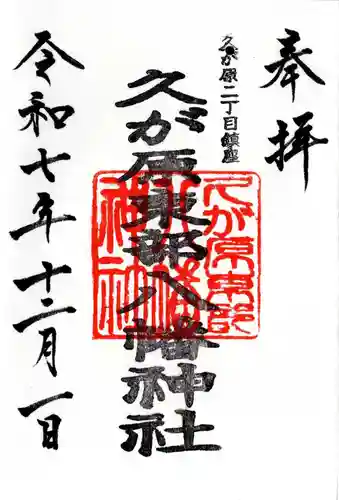 奉拝
久が原二丁目鎮座
久が原東部八幡神社
久が原東部八幡神社
令和七年十二月一日